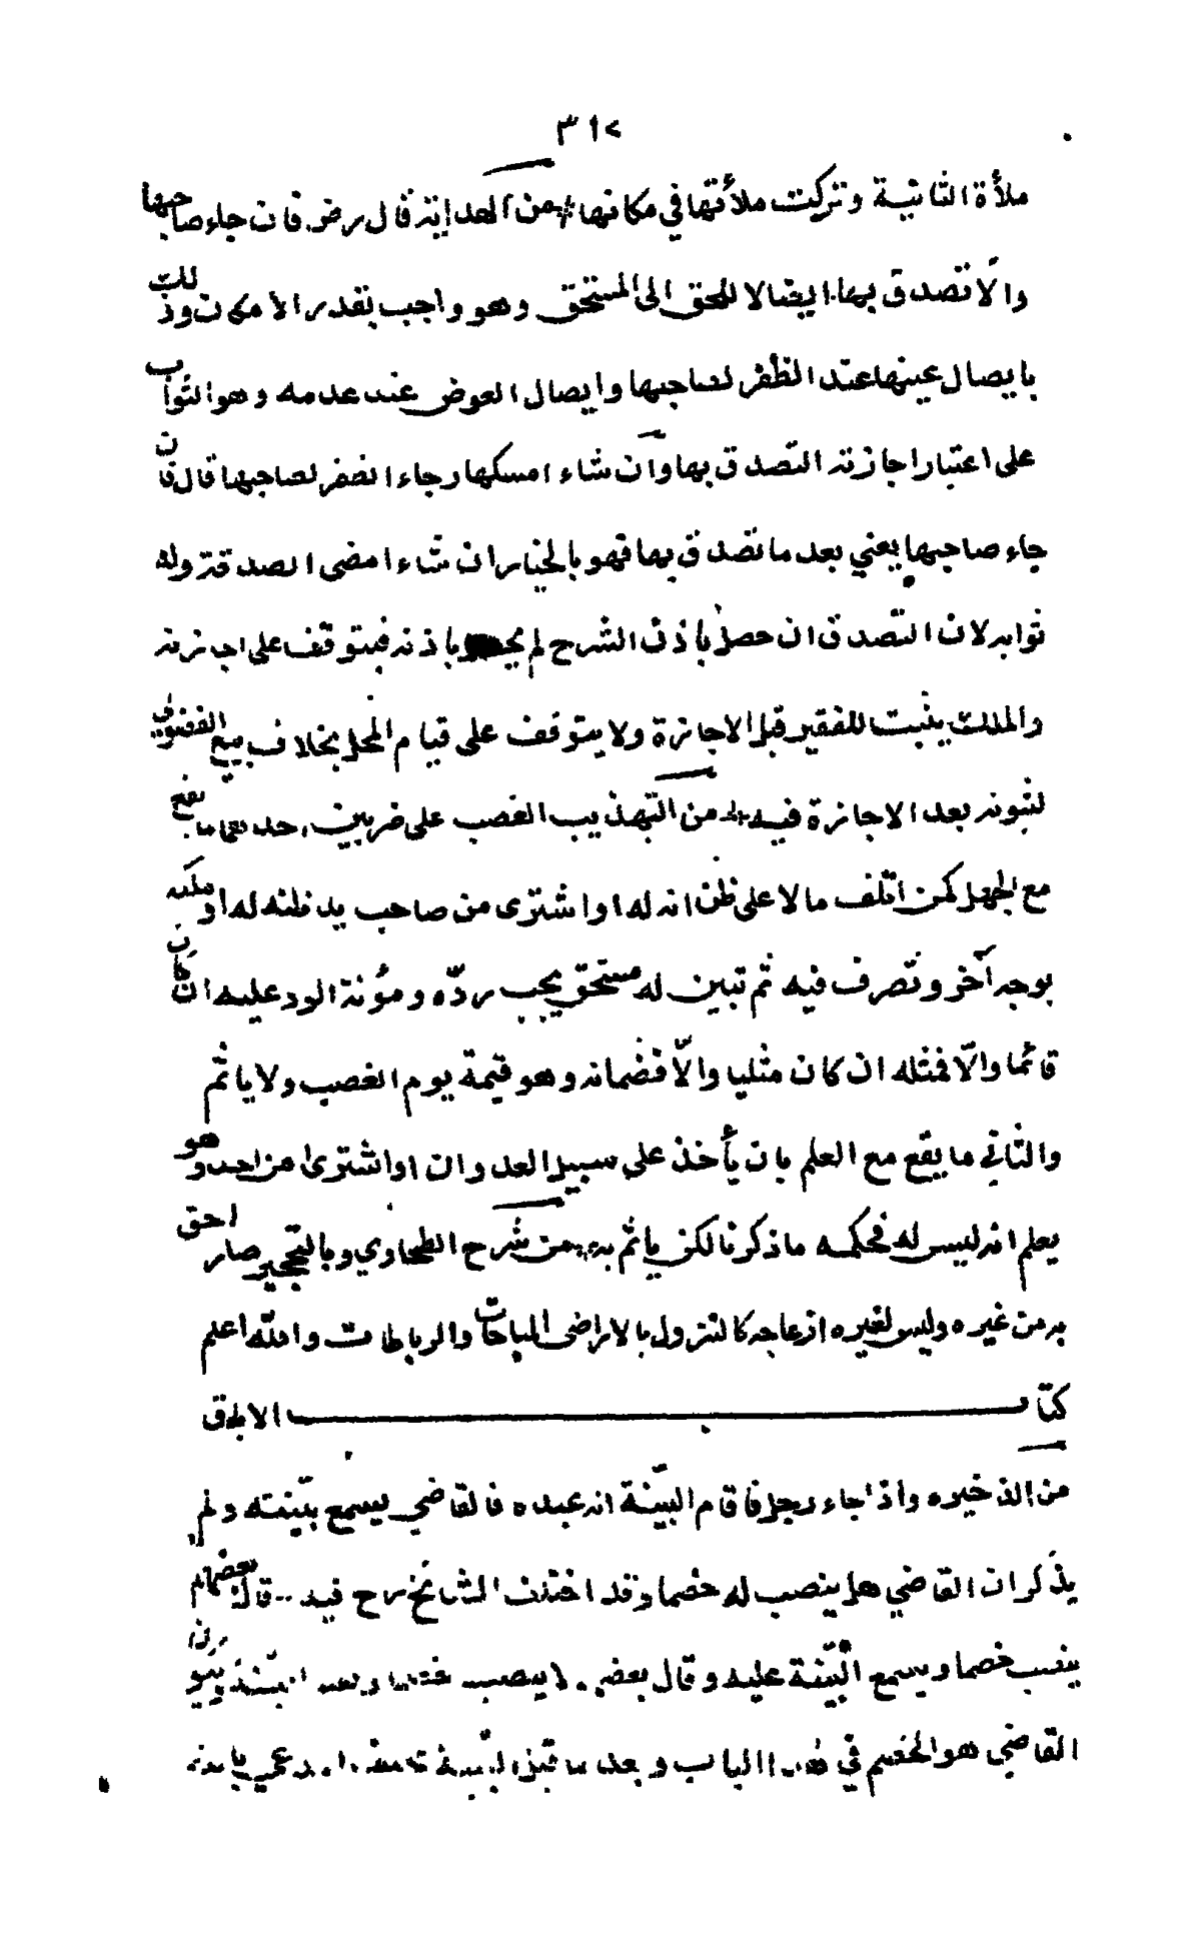 ٣١٢
ملأة الثانية وتركت ملأتها في مكانها من الهداية قال رض فان جاء صاحبها
والّا تصدق بها ايضالا للحق الى المستحق وهو واجب بقدر الامكان وذلك
بايصال عينها عند الظفر لصاحبها وايصال العوض عند عدمه وهو الثواب
على اعتبار اجازته التصدق بها وان شاء امسكها رجاء الضفر لصاحبها قال فان
جاء صاحبها يعني بعد ما تصدق بها فهو بالخيار ان شاء امضى الصدقة وله
ثوابه لان التصدق ان حصل باذن الشرح لم يحصل باذنه فيتوقف على اجازته
والملك يثبت للفقير قبل الاجازة ولا يتوقف على قيام المحل بخلاف بيع الفضولي
لثبوته بعد الاجازة فيه من التهذيب الغصب على ضربين احدهما ما يقع
مع الجهل كمن اتلف مالا على ظن انه له او اشترى من صاحب يد ظنه له او ملكه
بوجه آخر وتصرف فيه ثم تبين له مستحق يجب ردّه ومؤنة الرد عليه ان كان
قائما والّا فمثله ان كان مثليا والّا فضمانه وهو قيمة يوم الغصب ولا ياثم
والثاني ما يقع مع العلم بان يأخذ على سبيل العدوان او اشترى من احد وهو
يعلم انه ليس له فحكمه ما ذكرنا لكن ياثم به من شرح الطحاوي وبالتحجير صار احق
به من غيره وليس لغيره ازعاجه كالنزول بالاراضى المباحات والرباطات والله اعلم
كتاب الاباق
من الذخيره واذا جاء رجل فاقام البيّنة انه عبده فالقاضي يسمع بيّنته ولم
يذكر ان القاضي هل ينصب له خصما وقد اختلف المشائخ رح فيه قال بعضهم
ينصب خصما ويسمع البيّنة عليه وقال بعضهم لا ينصب خصما وبعد البيّنة ويكون
القاضي هو الخصم في هذا الباب وبعد ما قبل البيّنة